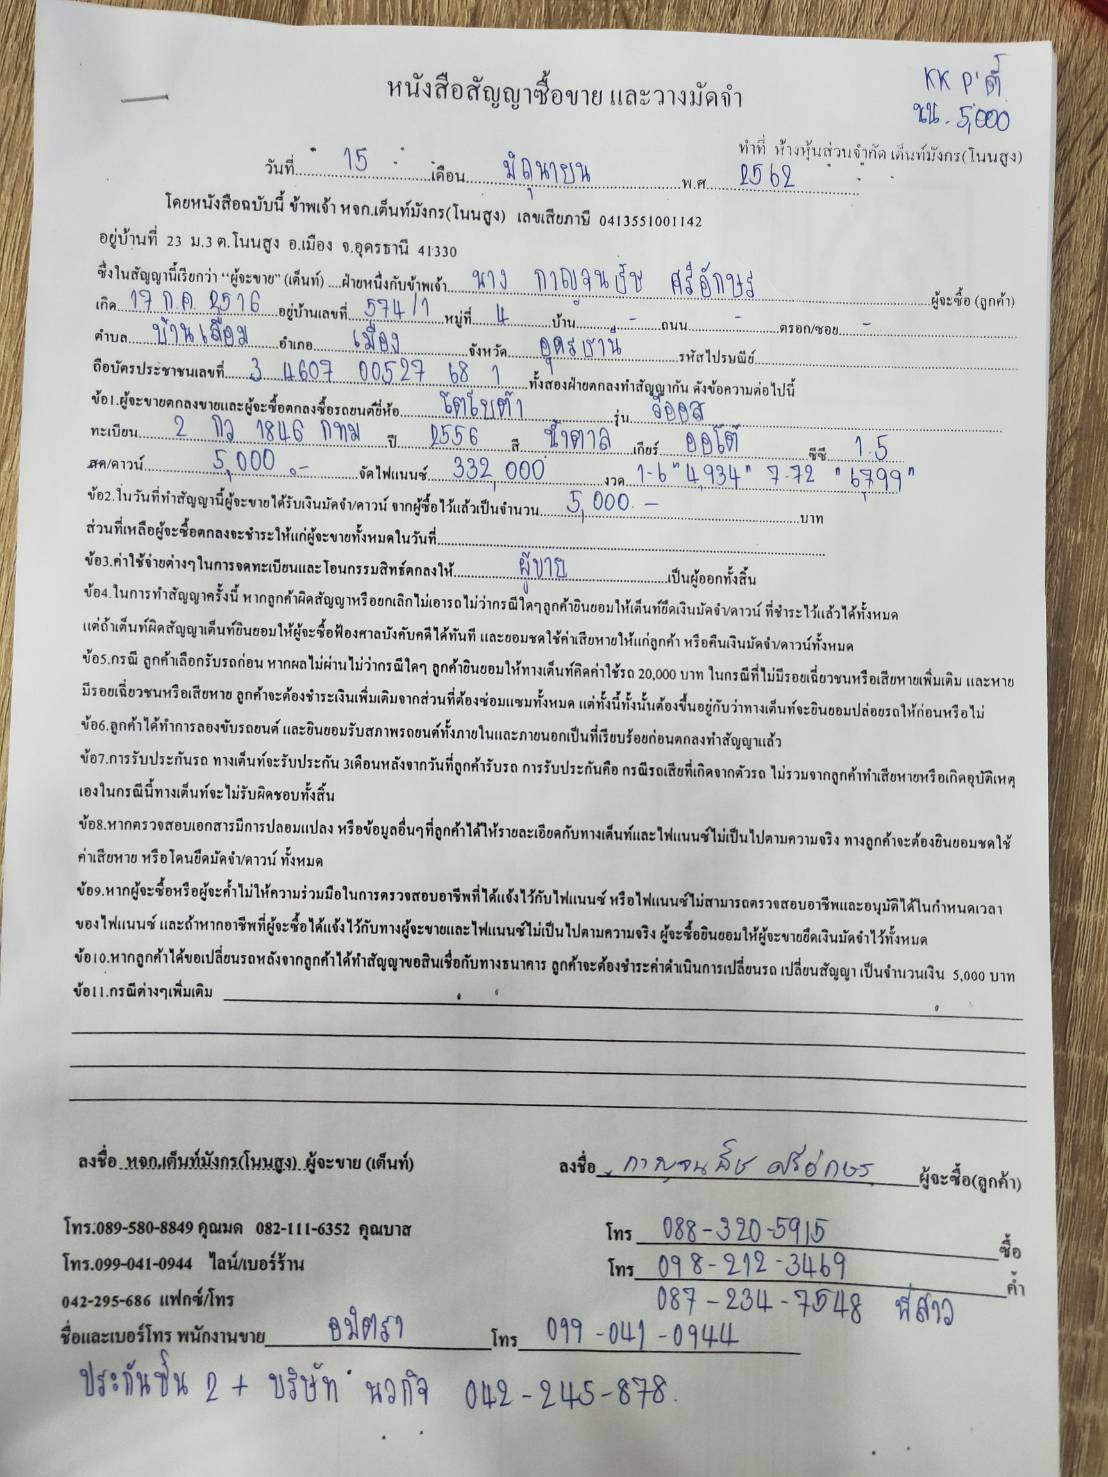 KK P'ตี๋
นน. 5,000
หนังสือสัญญาซื้อขาย และวางมัดจำ
ทำที่ ห้างหุ้นส่วนจำกัด เต็นท์มังกร(โนนสูง)
วันที่ 15 เดือน มิถุนายน พ.ศ 2562
โดยหนังสือฉบับนี้ ข้าพเจ้า หจก.เต็นท์มังกร(โนนสูง) เลขเสียภาษี 0413551001142
อยู่บ้านที่ 23 ม.3 ต.โนนสูง อ.เมือง จ.อุดรธานี 41330
ซึ่งในสัญญานี้เรียกว่า "ผู้จะขาย" (เต็นท์) ....ฝ่ายหนึ่งกับข้าพเจ้า นาง กาญจนณัช ศรีอักษร ผู้จะซื้อ (ลูกค้า)
เกิด 17 ก.ค. 2516 อยู่บ้านเลขที่ 574/1 หมู่ที่ 4 บ้าน - ถนน - ตรอก/ซอย -
ตำบล บ้านเลื่อม อำเภอ เมือง จังหวัด อุดรธานี รหัสไปรษณีย์
ถือบัตรประชาชนเลขที่ 3 4607 00527 68 1 ทั้งสองฝ่ายตกลงทำสัญญากัน ดังข้อความต่อไปนี้
ข้อ1.ผู้จะขายตกลงขายและผู้จะซื้อตกลงซื้อรถยนต์ยี่ห้อ โตโยต้า รุ่น วีออส
ทะเบียน 2 กว 1846 กทม ปี 2556 สี น้ำตาล เกียร์ ออโต้ ซีซี 1.5
สด/ดาวน์ 5,000.- จัดไฟแนนซ์ 332,000 งวด 1-6 "4,934" 7-72 "6,799"
ข้อ2.ในวันที่ทำสัญญานี้ผู้จะขายได้รับเงินมัดจำ/ดาวน์ จากผู้ซื้อไว้แล้วเป็นจำนวน 5,000.- บาท
ส่วนที่เหลือผู้จะซื้อตกลงจะชำระให้แก่ผู้จะขายทั้งหมดในวันที่
ข้อ3.ค่าใช้จ่ายต่างๆในการจดทะเบียนและโอนกรรมสิทธ์ตกลงให้ ผู้ขาย เป็นผู้ออกทั้งสิ้น
ข้อ4.ในการทำสัญญาครั้งนี้ หากลูกค้าผิดสัญญาหรือยกเลิกไม่เอารถไม่ว่ากรณีใดๆลูกค้ายินยอมให้เต็นท์ยึดเงินมัดจำ/ดาวน์ ที่ชำระไว้แล้วได้ทั้งหมด
แต่ถ้าเต็นท์ผิดสัญญาเต็นท์ยินยอมให้ผู้จะซื้อฟ้องศาลบังคับคดีได้ทันที และยอมชดใช้ค่าเสียหายให้แก่ลูกค้า หรือคืนเงินมัดจำ/ดาวน์ทั้งหมด
ข้อ5.กรณี ลูกค้าเลือกรับรถก่อน หากผลไม่ผ่านไม่ว่ากรณีใดๆ ลูกค้ายินยอมให้ทางเต็นท์คิดค่าใช้รถ 20,000 บาท ในกรณีที่ไม่มีรอยเฉี่ยวชนหรือเสียหายเพิ่มเติม และหาย
มีรอยเฉี่ยวชนหรือเสียหาย ลูกค้าจะต้องชำระเงินเพิ่มเติมจากส่วนที่ต้องซ่อมแซมทั้งหมด แต่ทั้งนี้ทั้งนั้นต้องขึ้นอยู่กับว่าทางเต็นท์จะยินยอมปล่อยรถให้ก่อนหรือไม่
ข้อ6.ลูกค้าได้ทำการลองขับรถยนต์ และยินยอมรับสภาพรถยนต์ทั้งภายในและภายนอกเป็นที่เรียบร้อยก่อนตกลงทำสัญญาแล้ว
ข้อ7.การรับประกันรถ ทางเต็นท์จะรับประกัน 3เดือนหลังจากวันที่ลูกค้ารับรถ การรับประกันคือ กรณีรถเสียที่เกิดจากตัวรถ ไม่รวมจากลูกค้าทำเสียหายหรือเกิดอุบัติเหตุ
เองในกรณีนี้ทางเต็นท์จะไม่รับผิดชอบทั้งสิ้น
ข้อ8.หากตรวจสอบเอกสารมีการปลอมแปลง หรือข้อมูลอื่นๆที่ลูกค้าได้ให้รายละเอียดกับทางเต็นท์และไฟแนนซ์ไม่เป็นไปตามความจริง ทางลูกค้าจะต้องยินยอมชดใช้
ค่าเสียหาย หรือโดนยึดมัดจำ/ดาวน์ ทั้งหมด
ข้อ9.หากผู้จะซื้อหรือผู้จะค้ำไม่ให้ความร่วมมือในการตรวจสอบอาชีพที่ได้แจ้งไว้กับไฟแนนซ์ หรือไฟแนนซ์ไม่สามารถตรวจสอบอาชีพและอนุมัติได้ในกำหนดเวลา
ของไฟแนนซ์ และถ้าหากอาชีพที่ผู้จะซื้อได้แจ้งไว้กับทางผู้จะขายและไฟแนนซ์ไม่เป็นไปตามความจริง ผู้จะซื้อยินยอมให้ผู้จะขายยึดเงินมัดจำไว้ทั้งหมด
ข้อ10.หากลูกค้าได้ขอเปลี่ยนรถหลังจากลูกค้าได้ทำสัญญาขอสินเชื่อกับทางธนาคาร ลูกค้าจะต้องชำระค่าดำเนินการเปลี่ยนรถ เปลี่ยนสัญญา เป็นจำนวนเงิน 5,000 บาท
ข้อ11.กรณีต่างๆเพิ่มเติม
ลงชื่อ หจก.เต็นท์มังกร(โนนสูง) ผู้จะขาย (เต็นท์) ลงชื่อ กาญจนณัช ศรีอักษร ผู้จะซื้อ(ลูกค้า)
โทร.089-580-8849 คุณมด 082-111-6352 คุณบาส โทร 088-320-5915 ซื้อ
โทร.099-041-0944 ไลน์/เบอร์ร้าน โทร 098-212-3469 ค้ำ
042-295-686 แฟกซ์/โทร 087-234-7548 พี่สาว
ชื่อและเบอร์โทร พนักงานขาย อมิตรา โทร 099-041-0944
ประกันชั้น 2+ บริษัท นวกิจ 042-245-878.